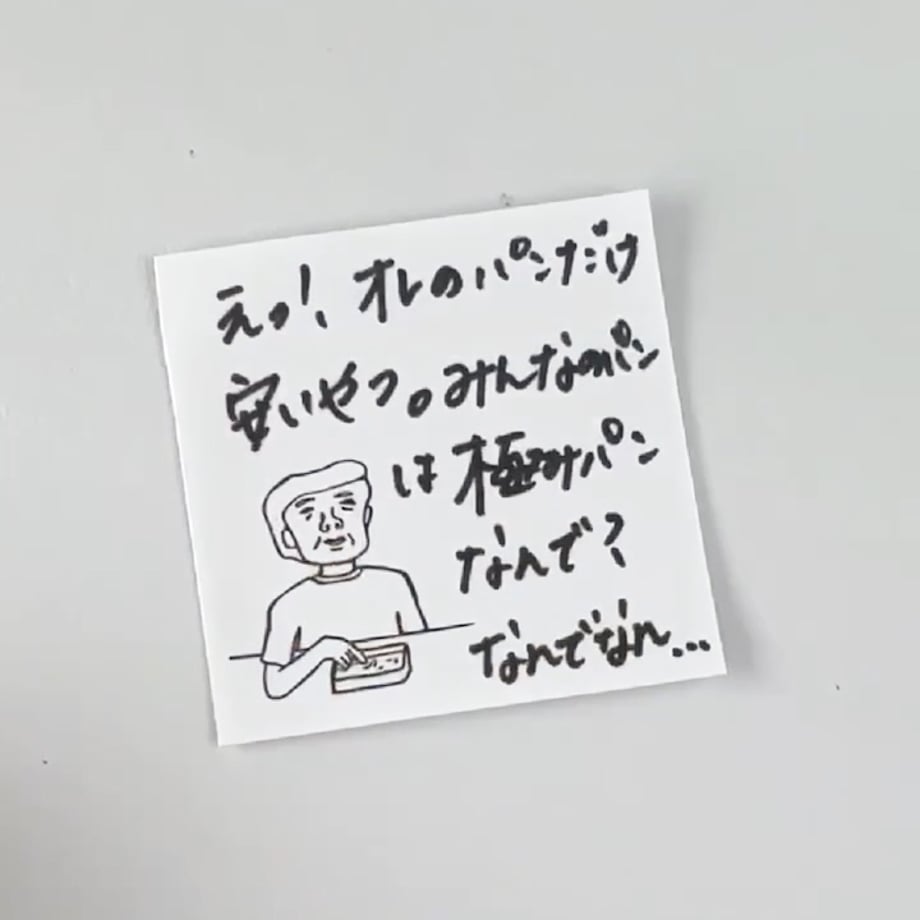 えっ！、オレのパンだけ
安いやつ。みんなのパン
は極みパン
なんで？
なんでなん...